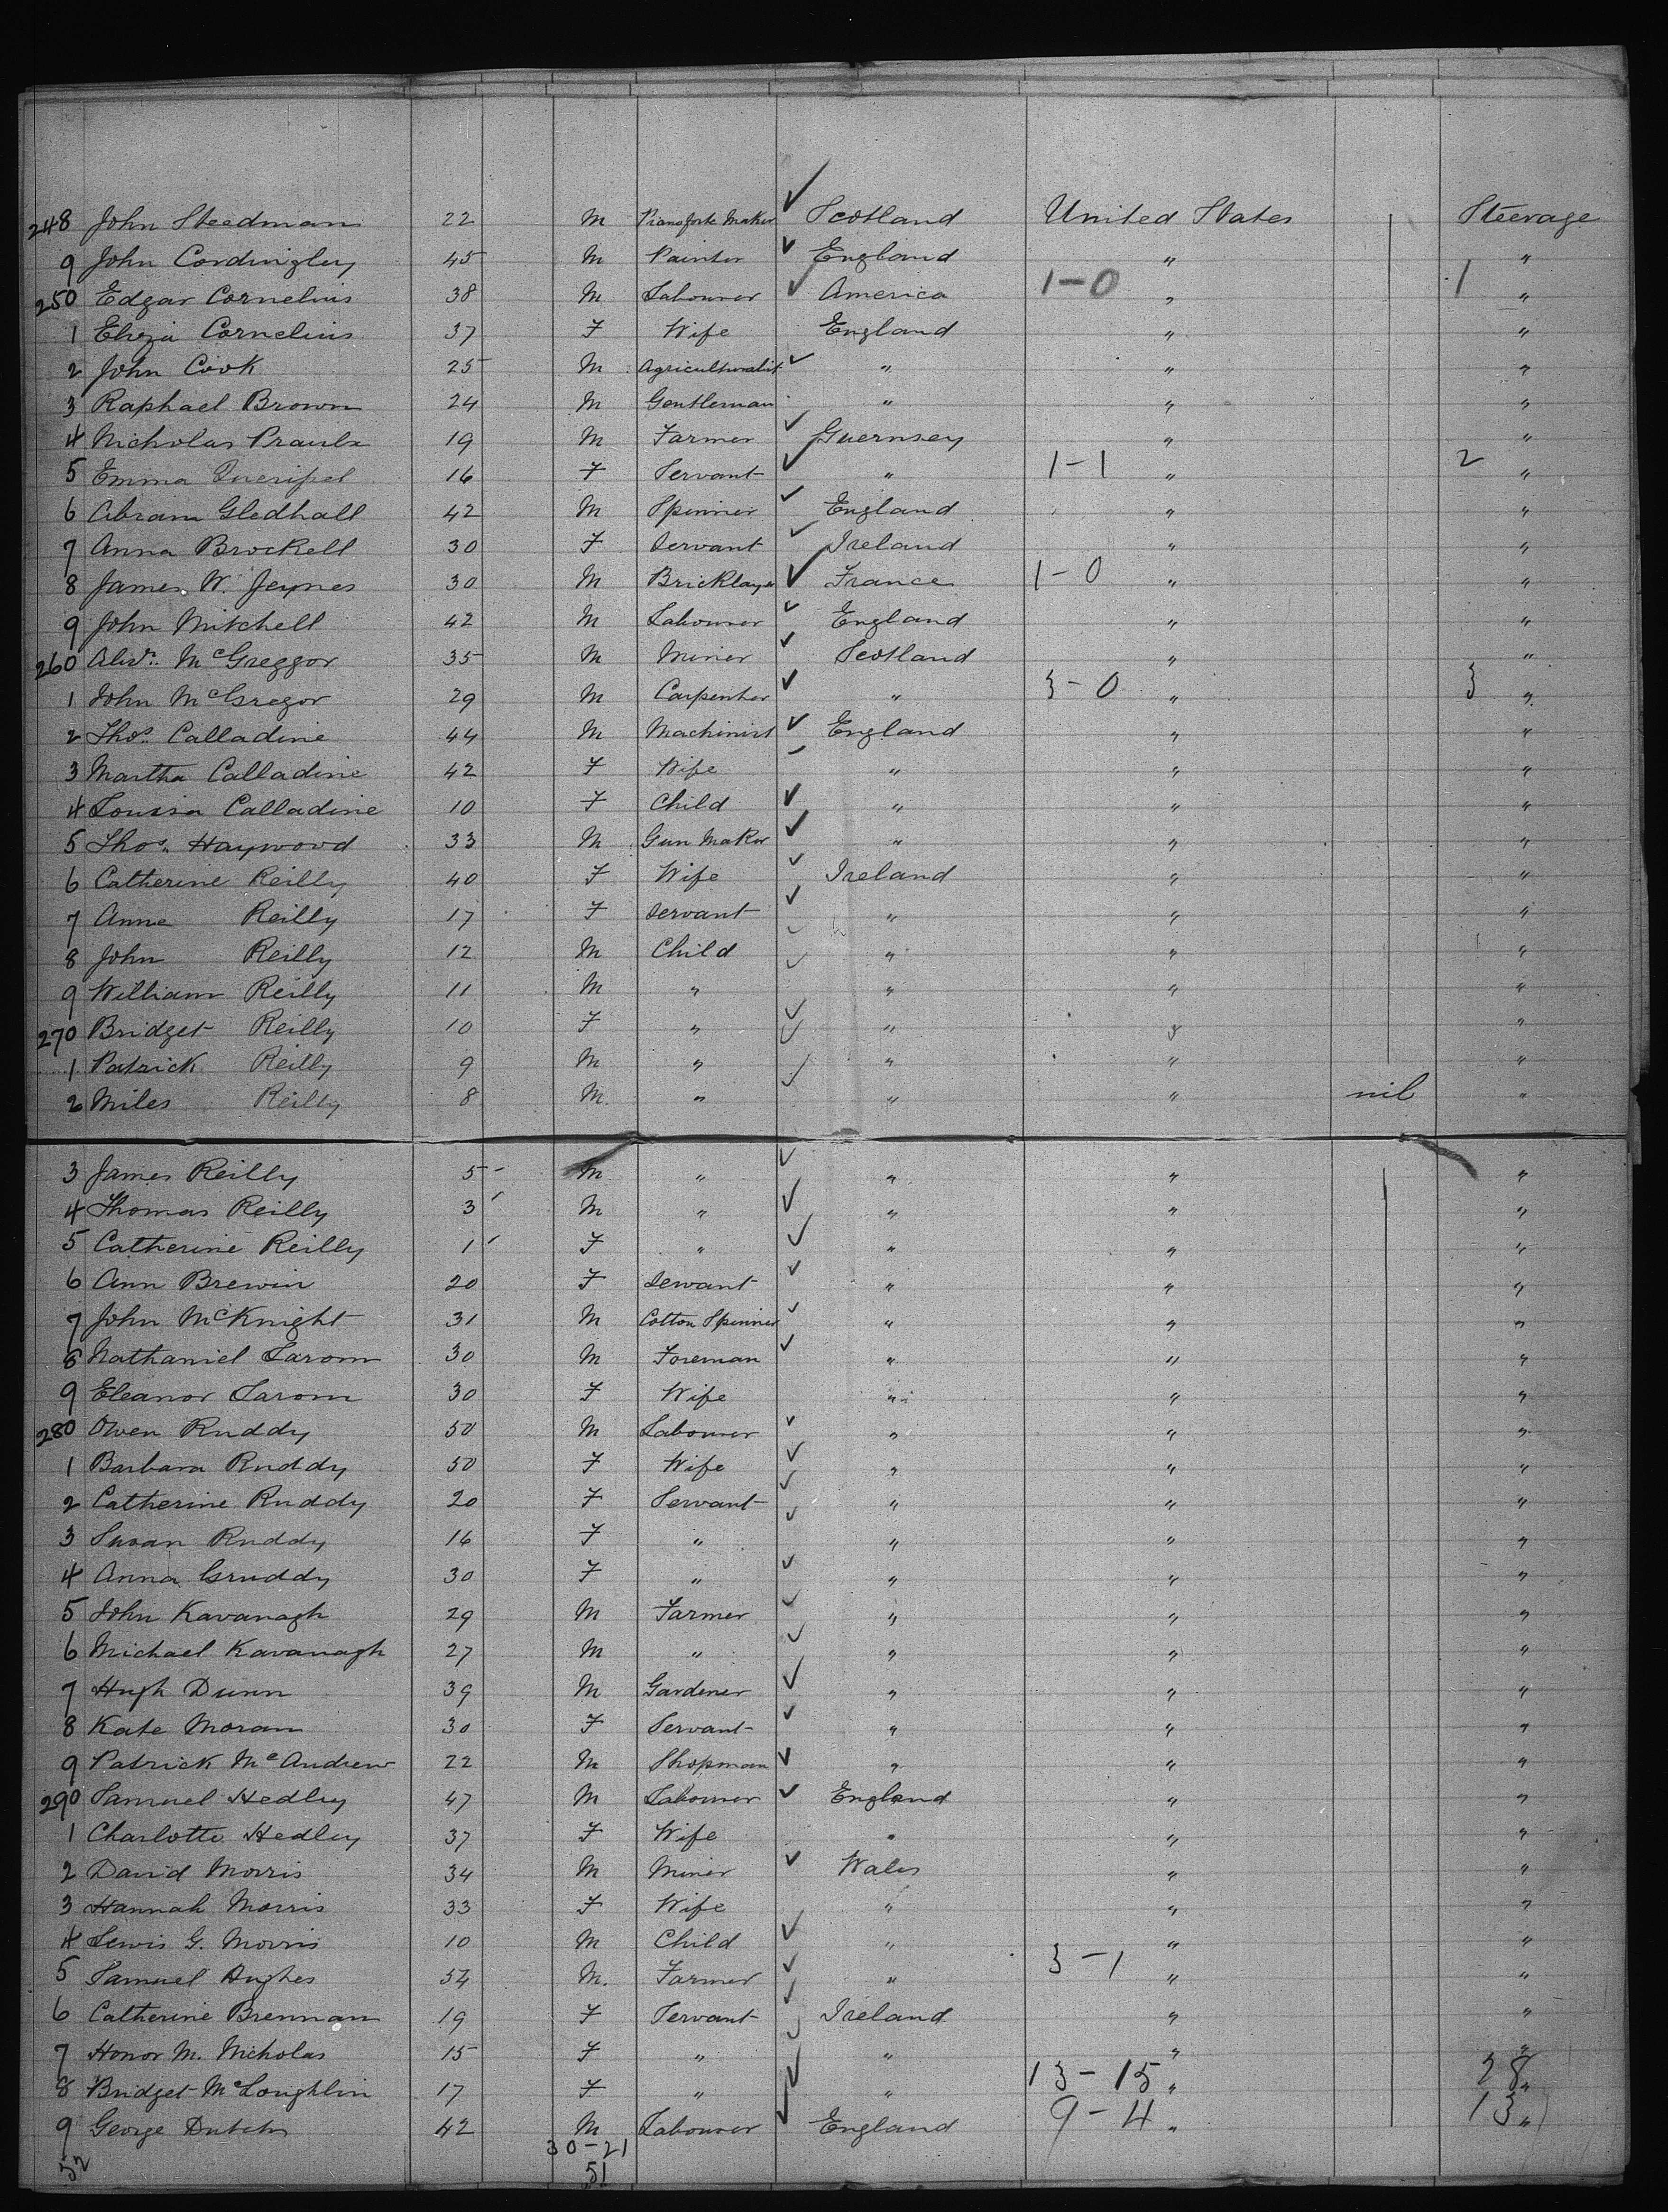 248 John Steedman 22 M Pianoforte Maker ✓ Scotland United States Steerage
9 John Cordingley 45 M Painter ✓ England " "
250 Edgar Cornelius 38 M Labourer ✓ America 1-0 " 1 "
1 Eliza Cornelius 37 F Wife England " "
2 John Cook 25 M Agriculturalist ✓ " " "
3 Raphael Brown 24 M Gentleman " " "
4 Nicholas 19 M Farmer ✓ Guernsey " "
5 Emma Queripel 16 F Servant ✓ " 1-1 " 2 "
6 Abram Gledhall 42 M Spinner ✓ England " "
7 Anna Brockell 30 F Servant ✓ Ireland " "
8 James W. Jeynes 30 M Bricklayer ✓ France 1-0 " "
9 John Mitchell 42 M Labourer ✓ England " "
260 Alexr. McGreggor 35 M Miner ✓ Scotland " "
1 John McGregor 29 M Carpenter ✓ " 3-0 " 3 "
2 Thos. Calladine 44 M Machinist ✓ England " "
3 Martha Calladine 42 F Wife " " "
4 Louisa Calladine 10 F Child ✓ " " "
5 Thos. Haywood 33 M Gun Maker ✓ " " "
6 Catherine Reilly 40 F Wife ✓ Ireland " "
7 Anne Reilly 17 F Servant ✓ " " "
8 John Reilly 12 M Child ✓ " " "
9 William Reilly 11 M " ✓ " " "
270 Bridget Reilly 10 F " ✓ " " "
1 Patrick Reilly 9 M " ✓ " " "
2 Miles Reilly 8 M. " ✓ " " nil "
3 James Reilly 5 M " ✓ " " "
4 Thomas Reilly 3 M " ✓ " " "
5 Catherine Reilly 1 F " ✓ " " "
6 Ann Brewin 20 F Servant ✓ " " "
7 John McKnight 31 M Cotton Spinner ✓ " " "
8 Nathaniel Larom 30 M Foreman ✓ " " "
9 Eleanor Larom 30 F Wife " " "
280 Owen Ruddy 50 M Labourer ✓ " " "
1 Barbara Ruddy 50 F Wife ✓ " " "
2 Catherine Ruddy 20 F Servant ✓ " " "
3 Susan Ruddy 16 F " ✓ " " "
4 Anna Gruddy 30 F " ✓ " " "
5 John Kavanagh 29 M Farmer ✓ " " "
6 Michael Kavanagh 27 M " ✓ " " "
7 Hugh Dunn 39 M Gardener ✓ " " "
8 Kate Moran 30 F Servant ✓ " " "
9 Patrick McAndrew 22 M Shopman ✓ " " "
290 Samuel Hedley 47 M Labourer ✓ England " "
1 Charlotte Hedley 37 F Wife " " "
2 David Morris 34 M Miner ✓ Wales " "
3 Hannah Morris 33 F Wife " " "
4 Lewis G. Morris 10 M Child ✓ " " "
5 Samuel Hughes 54 M. Farmer ✓ " 3-1 " "
6 Catherine Brennan 19 F Servant ✓ Ireland " "
7 Honor M. Nicholas 15 F " ✓ " " "
8 Bridget McLoughlin 17 F " ✓ " 13-15 " 28 "
9 George Dutch 42 M Labourer ✓ England 9-4 " 13 "
52 30-21
51